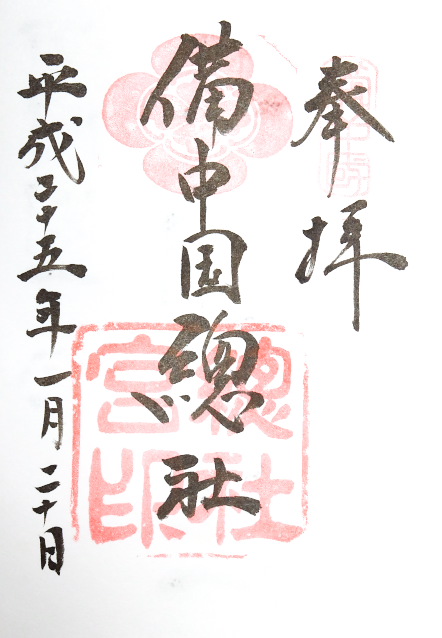 奉拝
備中国總社
平成二十五年一月二十日
總社宮印